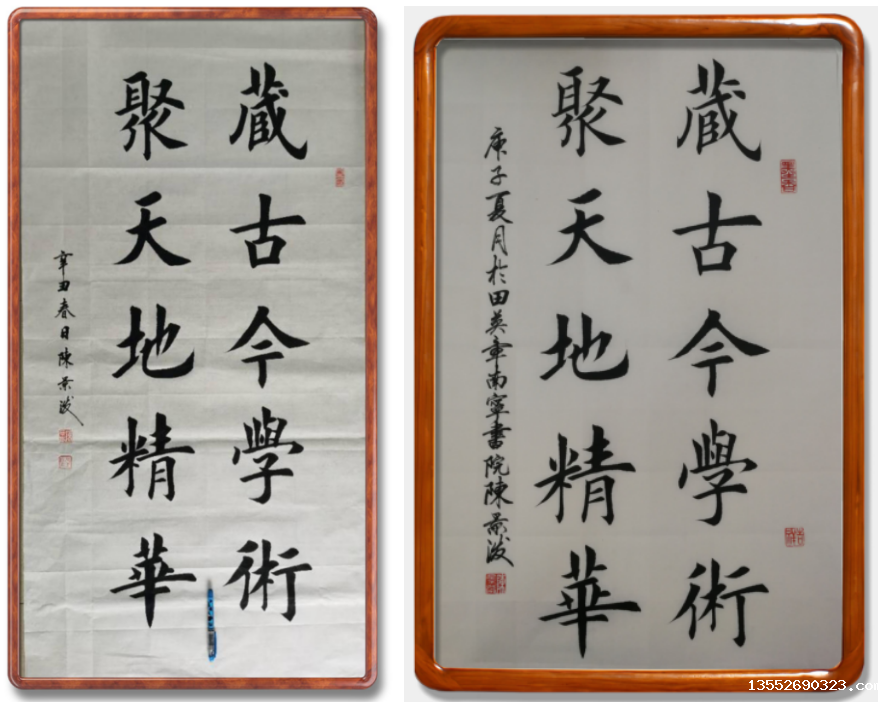 藏古今學術
聚天地精華
辛丑春日陳景波
藏古今學術
聚天地精華
庚子夏月於田英章南寧書院陳景波
13552690323.com